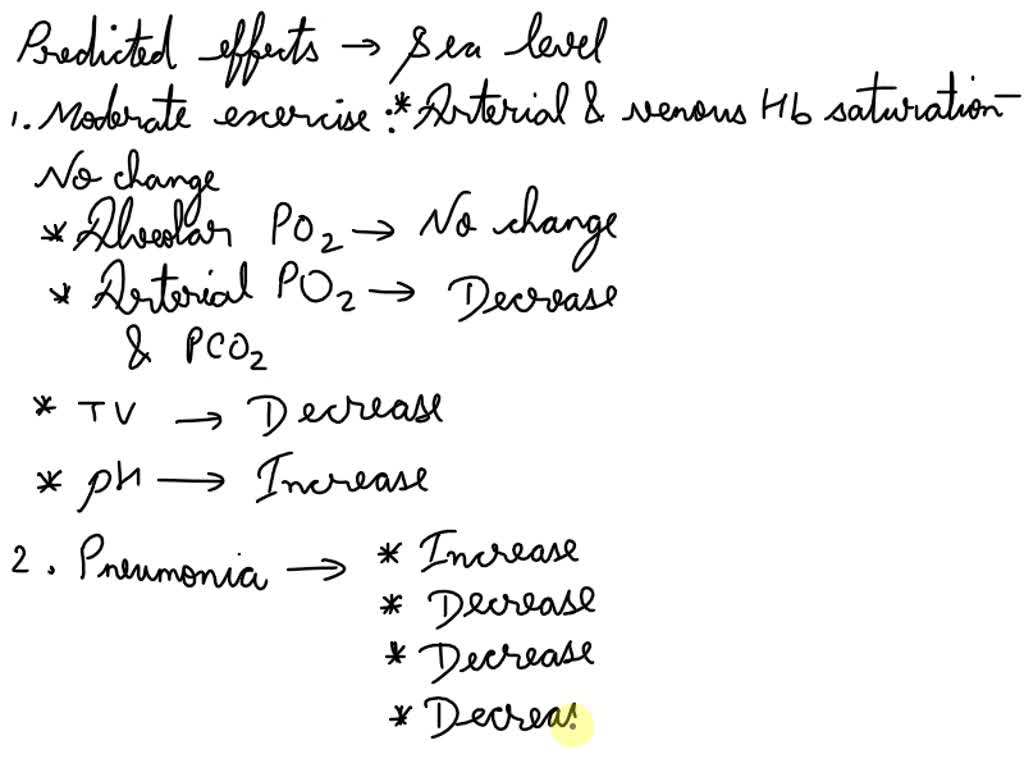 Predicted effects → Sea level
1. Moderate exercise :* Arterial & venous Hb saturation —
No change
* Alveolar PO2 → No change
* Arterial PO2 → Decrease
& PCO2
* TV → Decrease
* pH → Increase
2. Pneumonia → * Increase
* Decrease
* Decrease
* Decreas